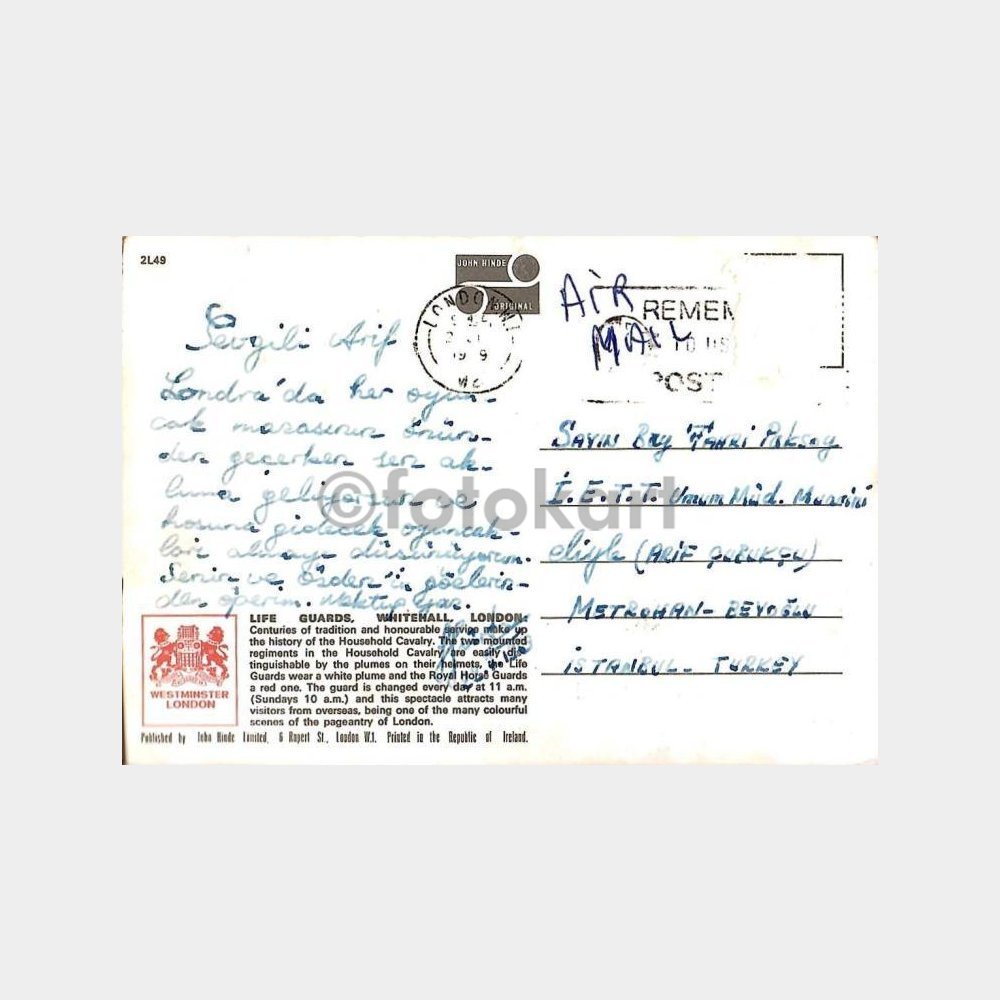 2L49
JOHN HINDE
ORIGINAL
LONDON
AİR
MAIL
POST
Sevgili Arif
Londra'da her oyun-
cak mağazasının önün-
den geçerken sen ak-
lıma geliyorsun ve
hoşuna gidecek oyuncak-
ları almayı düşünüyorum.
Senin ve Özden'in gözlerin-
den öperim. Mektup yaz.
SAYIN Bay FAHRİ
İ.E.T.T. Umum Müd. Muavini
eliyle (ARİF
METROHAN - BEYOĞLU
İSTANBUL - TURKEY
©fotokart
WESTMINSTER
LONDON
LIFE GUARDS, WHITEHALL, LONDON:
Centuries of tradition and honourable service make up
the history of the Household Cavalry. The two mounted
regiments in the Household Cavalry are easily dis-
tinguishable by the plumes on their helmets, the Life
Guards wear a white plume and the Royal Horse Guards
a red one. The guard is changed every day at 11 a.m.
(Sundays 10 a.m.) and this spectacle attracts many
visitors from overseas, being one of the many colourful
scenes of the pageantry of London.
Published by John Hinde Limited, 6 Rupert St., London W.1. Printed in the Republic of Ireland.